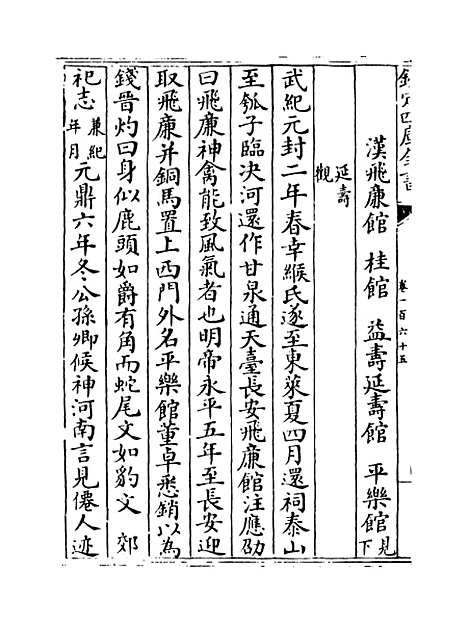 欽定四庫全書
卷一百六十五
漢飛廉館　桂館　益壽延壽館　平樂館見下
延壽觀
武紀元封二年春幸緱氏遂至東萊夏四月還祠泰山
至瓠子臨決河還作甘泉通天臺長安飛廉館注應劭
曰飛廉神禽能致風氣者也明帝永平五年至長安迎
取飛廉并銅馬置上西門外名平樂館董卓悉銷以為
錢晉灼曰身似鹿頭如爵有角而蛇尾文如豹文　郊
祀志兼紀年月元鼎六年冬公孫卿候神河南言見僊人迹